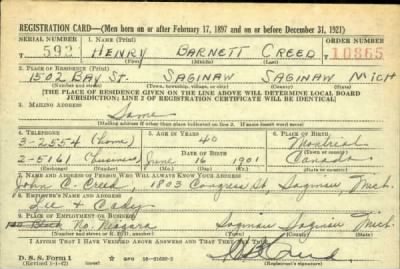 REGISTRATION CARD—(Men born on or after February 17, 1897 and on or before December 31, 1921)
SERIAL NUMBER 1. NAME (Print) ORDER NUMBER
593 HENRY BARNETT CREED 10365
(First) (Middle) (Last)
2. PLACE OF RESIDENCE (Print)
1502 BAY ST. SAGINAW SAGINAW MICH
(Number and street) (Town, township, village, or city) (County) (State)
[THE PLACE OF RESIDENCE GIVEN ON THE LINE ABOVE WILL DETERMINE LOCAL BOARD
JURISDICTION; LINE 2 OF REGISTRATION CERTIFICATE WILL BE IDENTICAL]
3. MAILING ADDRESS
Same
[Mailing address if other than place indicated on line 2. If same insert word same]
4. TELEPHONE 5. AGE IN YEARS 6. PLACE OF BIRTH
3-2554 (home) 40 Montreal
DATE OF BIRTH (Town or county)
2-5161 (business) June 16 1901 Canada
(Mo.) (Day) (Yr.) (State or country)
7. NAME AND ADDRESS OF PERSON WHO WILL ALWAYS KNOW YOUR ADDRESS
John C Creed, 1803 Congress St, Saginaw Mich.
8. EMPLOYER'S NAME AND ADDRESS
Lee & Cady
9. PLACE OF EMPLOYMENT OR BUSINESS
No. Niagara Saginaw Saginaw Mich.
(Number and street or R. F. D. number) (Town) (County) (State)
I AFFIRM THAT I HAVE VERIFIED ABOVE ANSWERS AND THAT THEY ARE TRUE.
D. S. S. Form 1
(Registrant's signature)